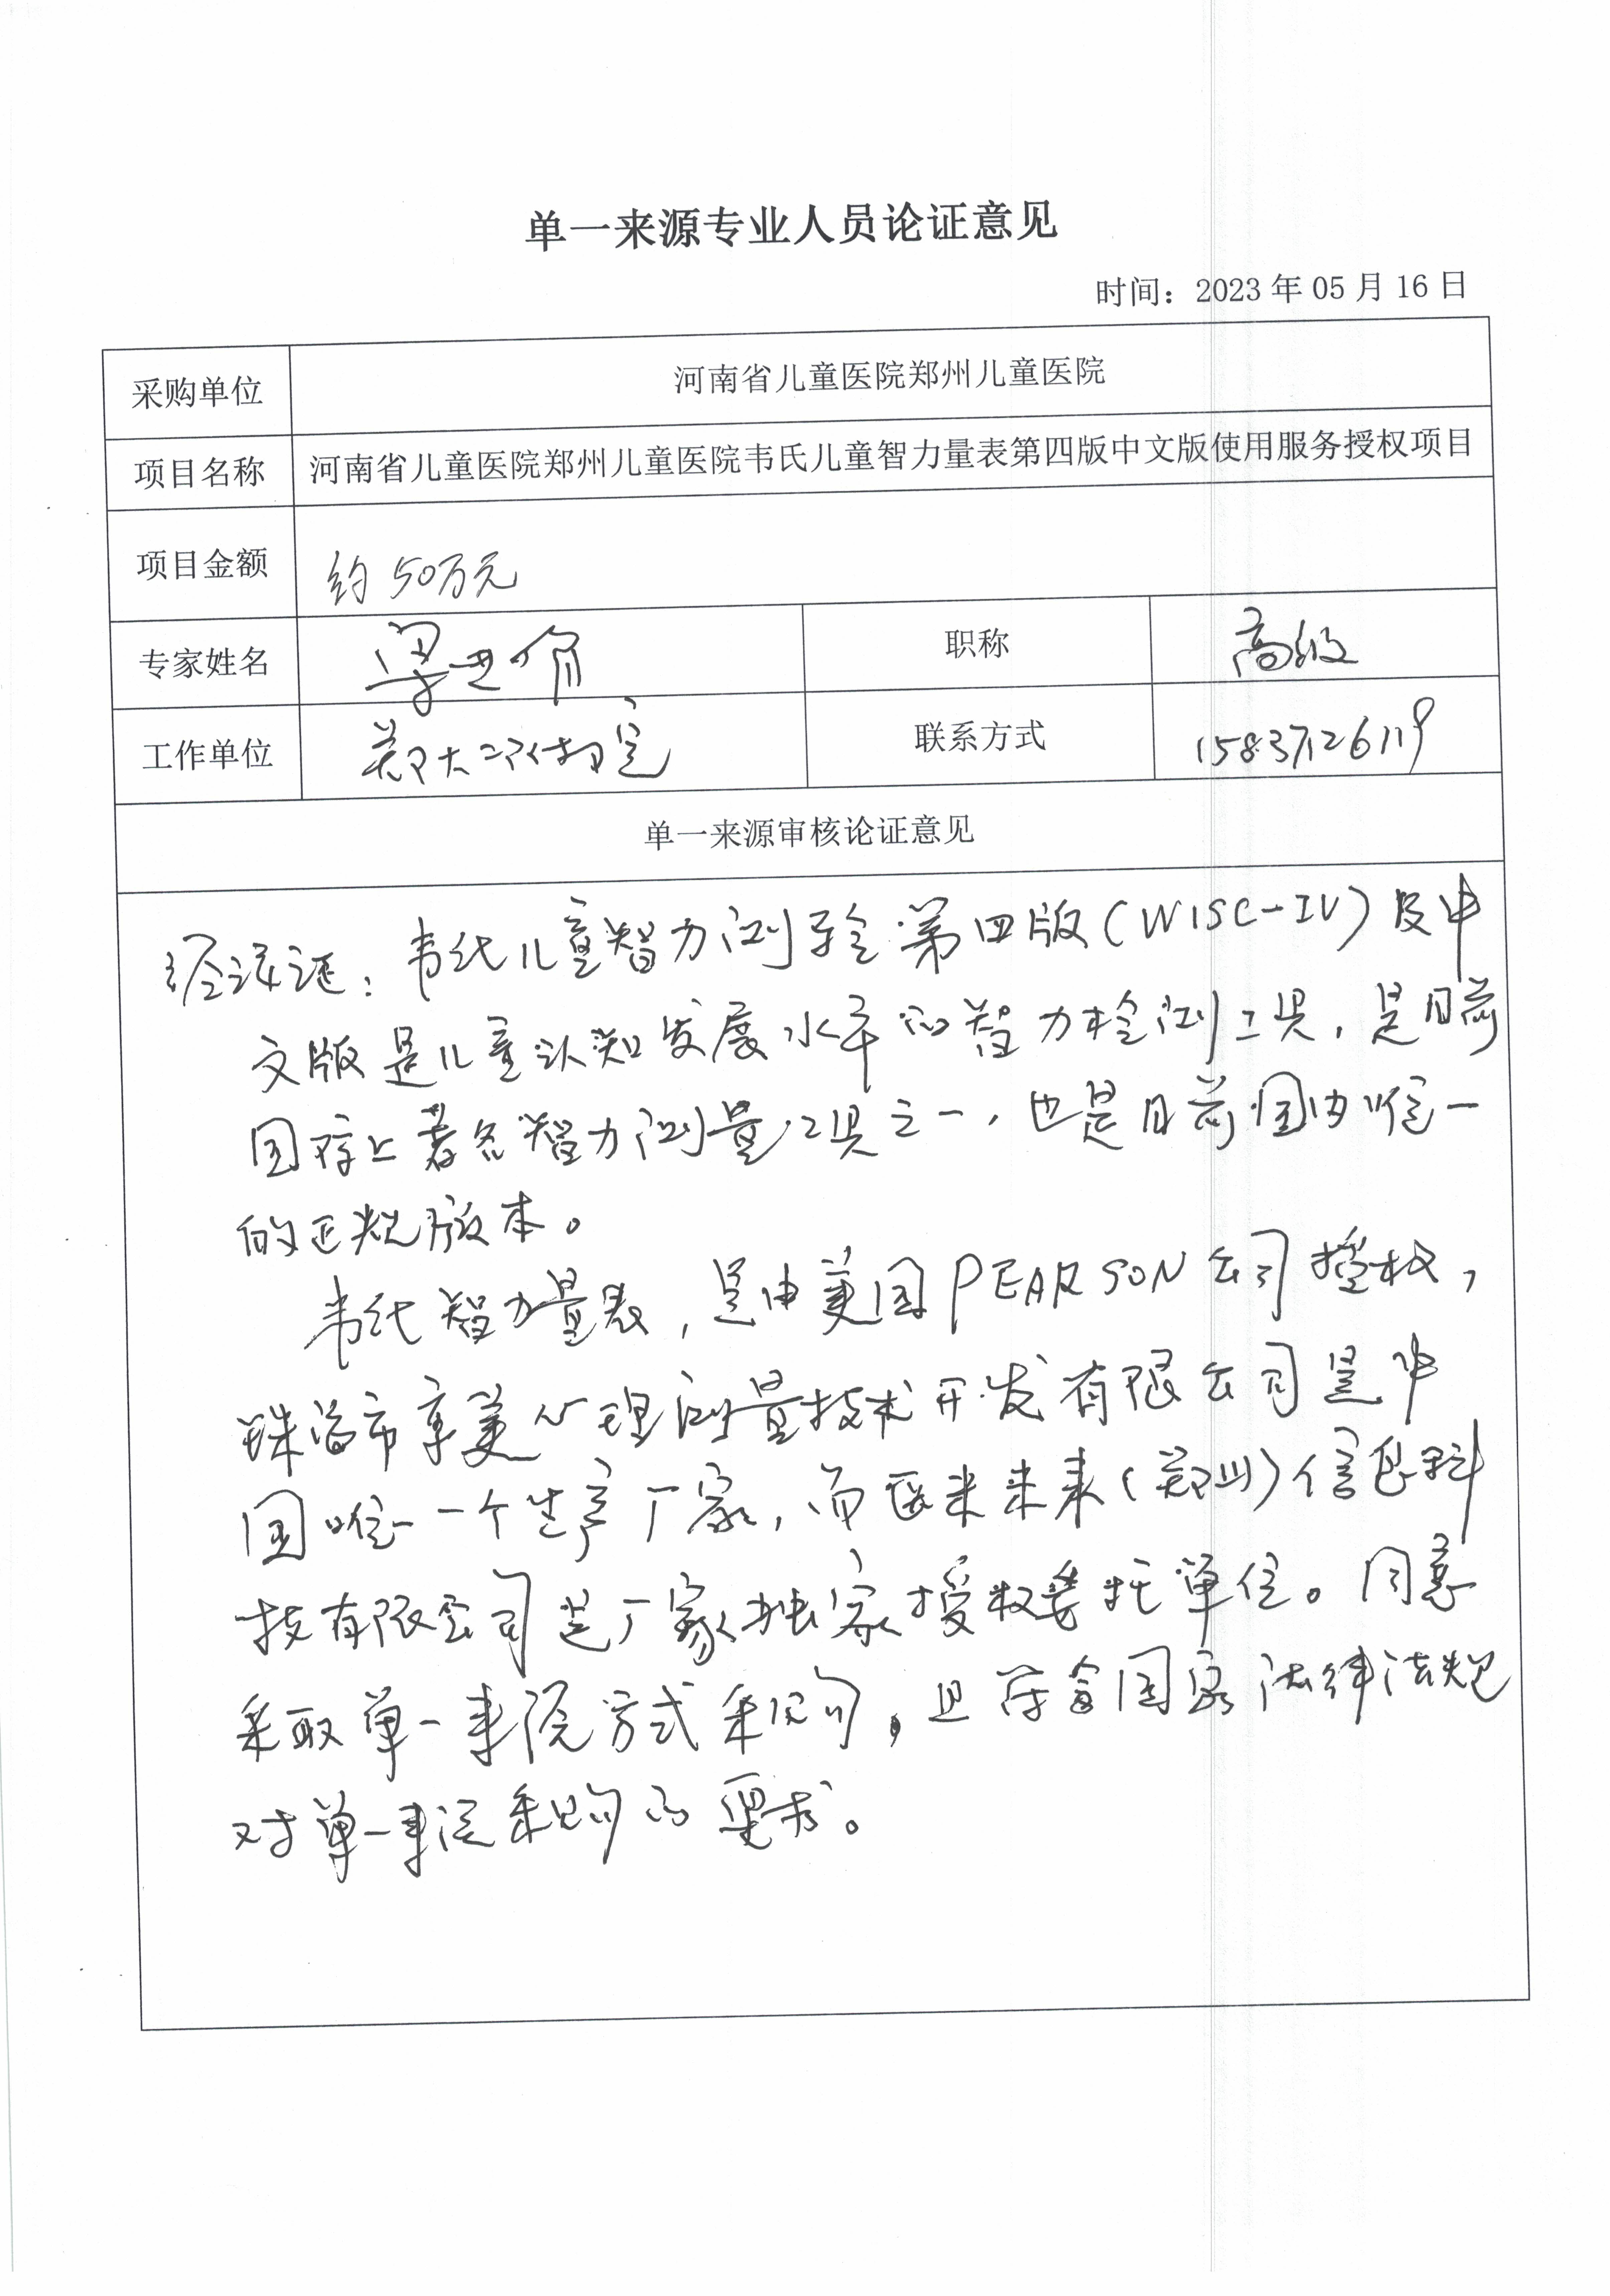 单一来源专业人员论证意见
时间：2023 年 05 月 16 日
采购单位 河南省儿童医院郑州儿童医院
项目名称 河南省儿童医院郑州儿童医院韦氏儿童智力量表第四版中文版使用服务授权项目
项目金额 约50万元
专家姓名 职称 高级
工作单位 郑大 联系方式 15837126119
单一来源审核论证意见
经论证：韦氏儿童智力测验第四版（WISC-IV）及中
文版是儿童认知发展水平的智力检测工具，是目前
国际上著名智力测量工具之一，也是目前国内唯一
的正规版本。
韦氏智力量表，是由美国PEARSON公司授权，
珠海市京美心理测量技术开发有限公司是中
国唯一一个生产厂家，而医来来（郑州）信息科
技有限公司是厂家独家授权委托单位。同意
采取单一来源方式采购，且符合国家法律法规
对单一来源采购的要求。